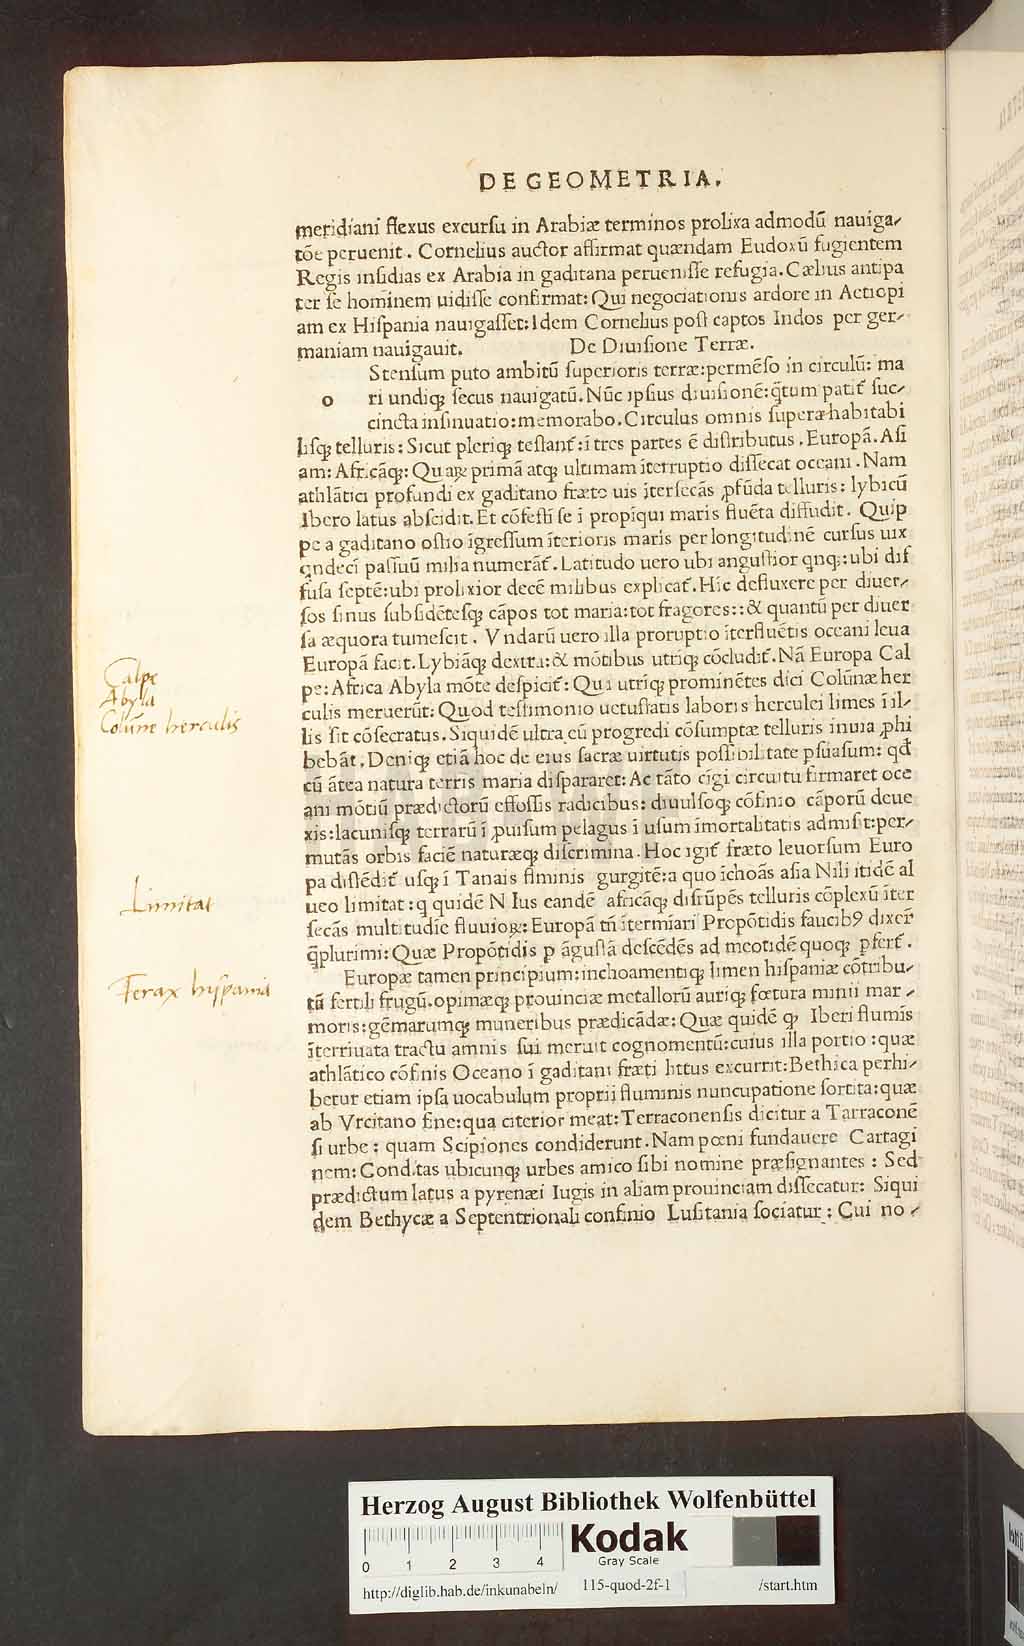 DE GEOMETRIA.
meridiani flexus excursu in Arabiæ terminos prolixa admodū nauiga-
tōe peruenit. Cornelius auctor affirmat quændam Eudoxū fugientem
Regis insidias ex Arabia in gaditana peruenisse refugia. Cælius antipa
ter se hominem uidisse confirmat: Qui negociationis ardore in Aetiopi
am ex Hispania nauigasset: Idem Cornelius post captos Indos per ger-
maniam nauigauit. De Diuisione Terræ.
Stensum puto ambitū superioris terræ: permēso in circulū: ma
o ri undiqꝫ secus nauigatū. Nūc ipsius diuisionē: q̄tum patit̄ suc-
cincta insinuatio: memorabo. Circulus omnis superæ habitabi
lisqꝫ telluris: Sicut pleriqꝫ testant̄: ī tres partes ē distributus. Europā. Asi
am: Africāqꝫ: Quaꝝ primā atqꝫ ultimam īterruptio dissecat oceani. Nam
athlātici profundi ex gaditano fræto uis ītersecās ꝓfūda telluris: lybicū
Ibero latus abscidit. Et cōfesti se ī propīqui maris fluēta diffudit. Quip
pe a gaditano ostio īgressum īterioris maris per longitudinē cursus uix
qndecī passuū milia numerāt̄. Latitudo uero ubi angustior qnqꝫ: ubi dif
fusa septē: ubi prolixior decē milibus explicat̄. Hic defluxere per diuer-
sos sinus subsidētesqꝫ cāpos tot maria: tot fragores:: & quantū per diuer
sa æquora tumescit. Vndarū uero illa proruptio īterfluētis oceani leua
Europā facit. Lybiāqꝫ dextra: & mōtibus utriqꝫ cōcludit̄. Nā Europa Cal
pe: Africa Abyla mōte despicit̄: Qui utriqꝫ prominētes dici Colūnæ her
culis meruerūt: Quod testimonio uetustatis laboris herculei limes ī il-
lis sit cōsecratus. Siquidē ultra eū progredi cōsumptæ telluris inuia ꝓhi
bebāt. Deniqꝫ etiā hoc de eius sacræ uirtutis possibilitate ꝑsuasum: qđ
cū ātea natura terris maria dispararet: Ac tāto cīgi circuitu firmaret oce
ani mōtiū prædictorū effossis radicibus: diuulsoqꝫ cōfinio cāporū deue
xis: lacunisqꝫ terrarū ī ꝓuisum pelagus ī usum īmortalitatis admisit: per-
mutās orbis faciē naturæqꝫ discrimina. Hoc igit̄ fræto leuorsum Euro
pa distēdit̄ usqꝫ ī Tanais flminis gurgitē: a quo īchoās asia Nili itidē al
ueo limitat: q quidē N Ius candē africāqꝫ disrūpēs telluris cōplexū īter
secās multitudīe fluuioꝝ: Europā tn̄ ītermīari Propōtidis faucibꝰ dixer̄
q̄plurimi: Quæ Propōtidis p āgustā descēdēs ad meotidē quoqꝫ ꝓfert̄.
Europæ tamen principium: inchoamentiqꝫ limen hispaniæ cōtribu-
tū fertili frugū. opimæqꝫ prouinciæ metallorū auriqꝫ fœtura minii mar-
moris: gēmarumqꝫ muneribus prædicādæ: Quæ quidē ꝙ Iberi flumīs
īterriuata tractu amnis sui meruit cognomentū: cuius illa portio: quæ
athlātico cōfinis Oceano ī gaditani fræti littus excurrit: Bethica perhi-
betur etiam ipsa uocabulum proprii fluminis nuncupatione sortita: quæ
ab Vrcitano fine: qua citerior meat: Terraconensis dicitur a Tarraconē
si urbe: quam Scipiones condiderunt. Nam pœni fundauere Cartagi
nem: Conditas ubicunqꝫ urbes amico sibi nomine præsignantes: Sed
prædictum latus a pyrenæi Iugis in aliam prouinciam dissecatur: Siqui
dem Bethycæ a Septentrionali confinio Lusitania sociatur: Cui no-
Calpe
Abyla
Colūne herculis
Limitat
Ferax hyspania
HAB WF
Herzog August Bibliothek Wolfenbüttel
0 1 2 3 4
Kodak
Gray Scale
http://diglib.hab.de/inkunabeln/ 115-quod-2f-1 /start.htm